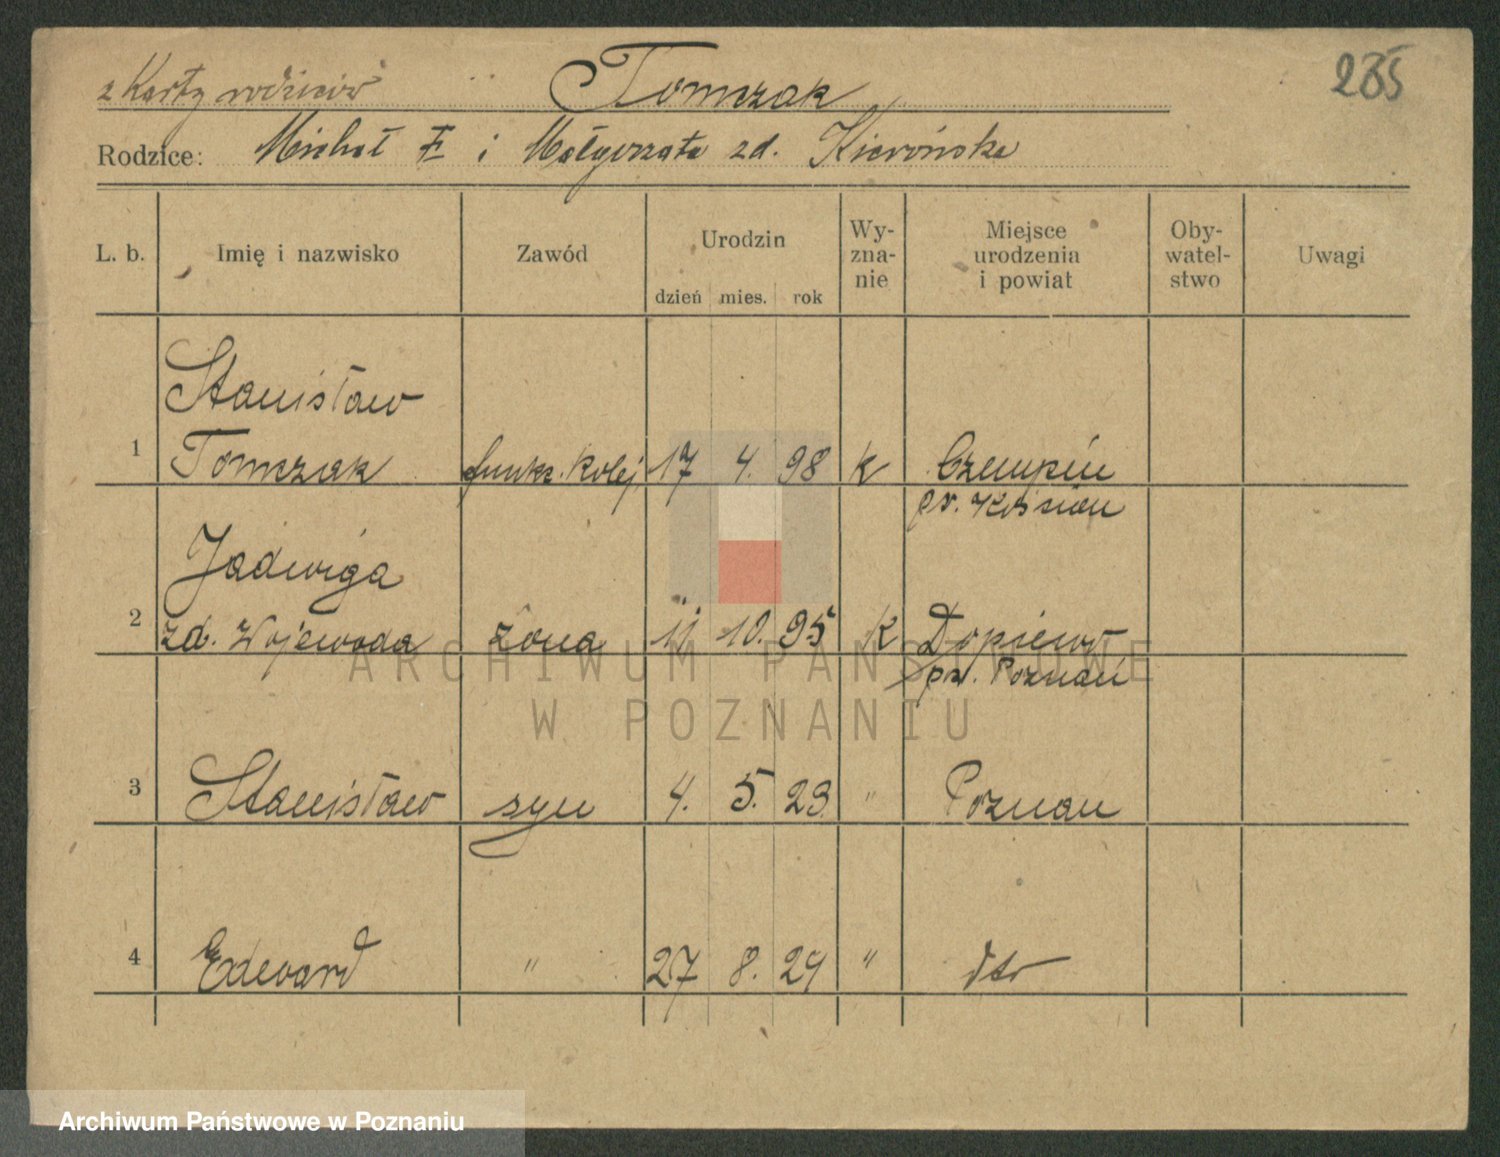 z Karty rodziców Tomczak 235
Rodzice: Michał i Małgorzata zd. Kierońska
L. b. Imię i nazwisko Zawód Urodzin Wy-zna-nie Miejsce urodzenia i powiat Oby-watel-stwo Uwagi
dzień mies. rok
Stanisław
1 Tomczak funkc. kolej. 17 4. 98 K Czempiń
pw. Kościan
Jadwiga
2 zd. Wojewoda żona 11 10. 95 K Dopiewo
pw. Poznań
ARCHIWUM PAŃSTWOWE
W POZNANIU
3 Stanisław syn 4. 5. 23 " Poznań
4 Edward " 27 8. 29 " dto
Archiwum Państwowe w Poznaniu